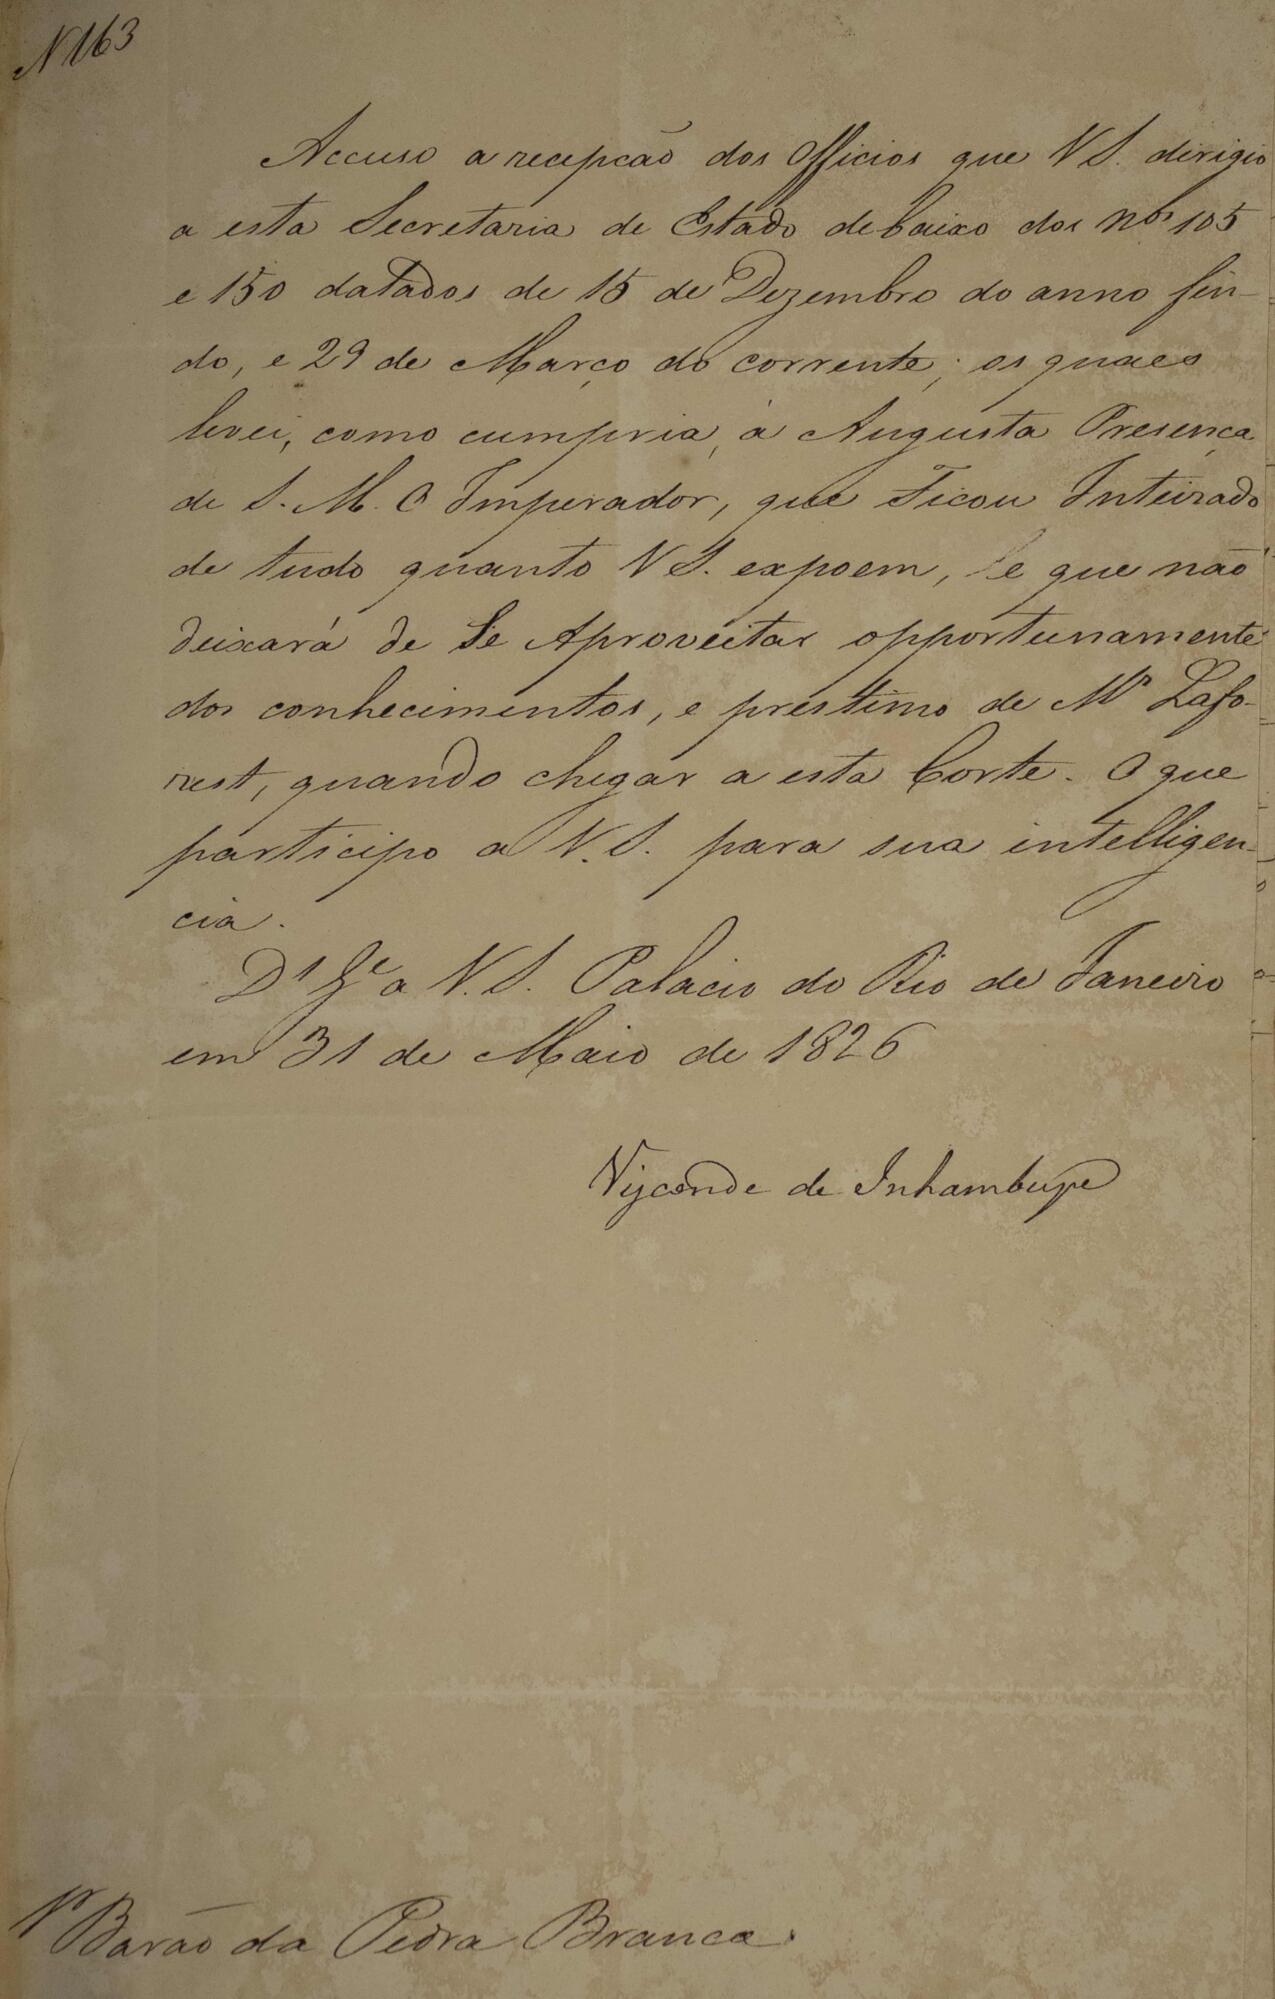 N 163
Accuso a recepcão dos Officios que V S. dirigio
a esta Secretaria de Estado debaixo dos nos. 105
e 150 datados de 15 de Dezembro do anno fin-
do, e 29 de Março do corrente; os quaes
levei, como cumpria, à Augusta Presença
de S. M. O Imperador, que Ficou Inteirado
de tudo quanto V S. expoem, e que não
deixará de Se Aproveitar opportunamente
dos conhecimentos, e prestimo de Mr Lafo-
rest, quando chegar a esta Corte. O que
participo a V. S. para sua intelligen-
cia.
Ds Ge a V. S. Palacio do Rio de Janeiro
em 31 de Maio de 1826
Visconde de Inhambupe
Barão da Pedra Branca.